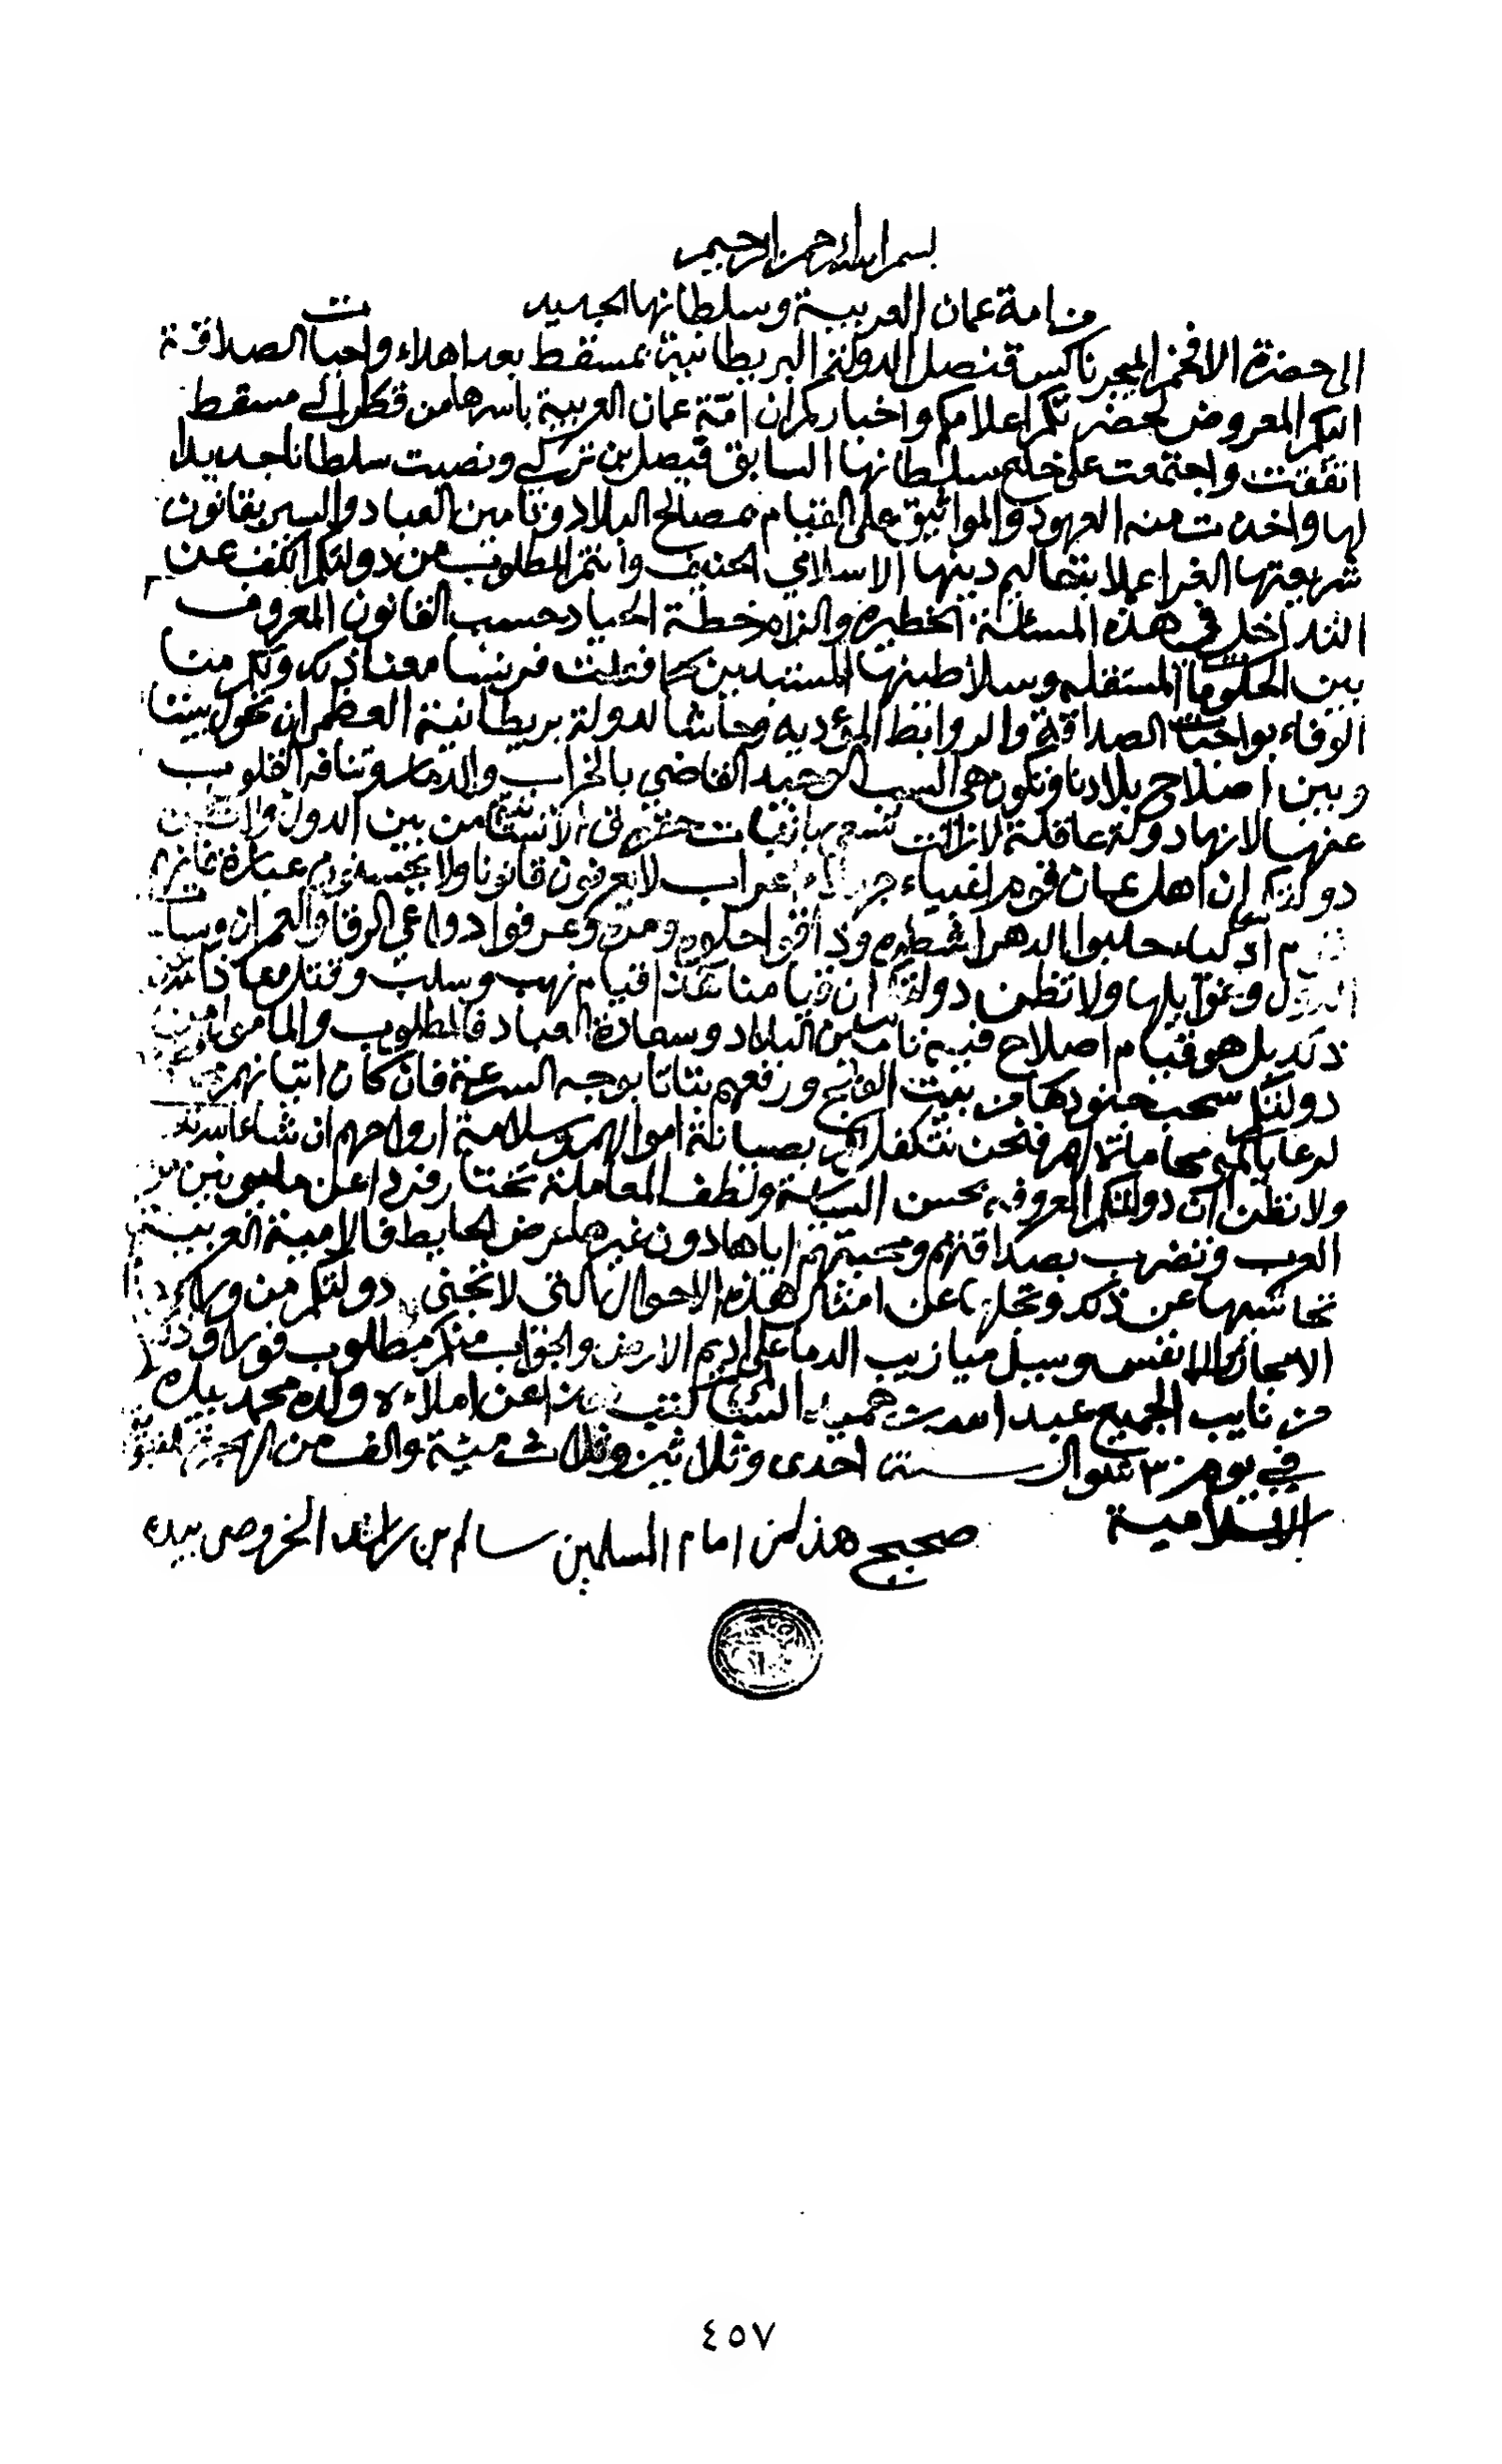 بسم الله الرحمن الرحيم
من امة عمان العربية وسلطانها الجديد
الى حضرة الافخم الميجر ناكس قنصل الدولة البريطانية بمسقط بعد اهداء واجبات الصداقة
اليكم المعروض لحضرتكم اعلامكم واخباركم ان امّة عمان العربية باسرها من قطر الى مسقط
اتفقت واجتمعت على خلع سلطانها السابق فيصل بن تركي ونصبت سلطانا جديدا
لها واخذت منه العهود والمواثيق على القيام بمصالح البلاد وتامين العباد والسير بقانون
شريعتها الغرا عملا بتعاليم دينها الاسلامي الحنيف وانتم المطلوب من دولتكم الكف عن
التداخل في هذه المسئلة الخطيره والزام خطة الحياد حسب القانون المعروف
بين الحكومات المستقله وسلاطينها المستبدين كما فعلت فرنسا معنا ذلك ولكم منا
الوفاء بواجبات الصداقة والروابط المؤديه وحاشا لدولة بريطانية العظمى ان تحول بيننا
وبين اصلاح بلادنا وتكون هي السبب الوحيد القاضي بالخراب والدمار وتنافر القلوب
عنها لانها دولة عاقلة لازالت من بين الدول
دولتكم ان اهل عمان قوم اغبياء اعراب لا يعرفون قانونا ولا
حلبوا الدهر اشطره وذاقوا حلوه ومره وعرفوا دواعي الرقا والعمران
ولا تظن دولتكم ان قيامنا هذا قيام نهب وسلب وقتل معاذ الله من
ذلك بل هو قيام اصلاح فيه تامين البلاد وسعادة العباد فالمطلوب والمامول من
دولتكم سحب جنودها من بيت الفلج ورفعهم بتاتا بوجه السرعة فان كان اتيانهم
لرعاياكم محاماة لهم فنحن نتكفل لكم بصيانة اموالهم وسلامة ارواحهم ان شاء الله
ولا نظن ان دولتكم المعروفه بحسن السياسة ولطف المعاملة تختار فردا عن مليونين من
العرب وتضرب بصداقتهم ومحبتهم اياها دون غيرها عرض الحايط فالامة العربية
تحاشيها عن ذلك وتجلها عن امثال هذه الاحوال التي لا تجني دولتكم من ورائها
الانفس وسيل ميازيب الدما على اديم الارض والجواب منكم مطلوب فورا
من نايب الجميع عبد الله بن حميد السالمي كتب هذا عن املاءه ولده محمد بيده
في يوم ٣٠ شوال سنة احدى وثلاثين وثلاث مئية والف من الهجرة النبوية
الاسلامية
صحيح هذا من امام المسلمين سالم بن راشد الخروصي بيده
٤٥٧